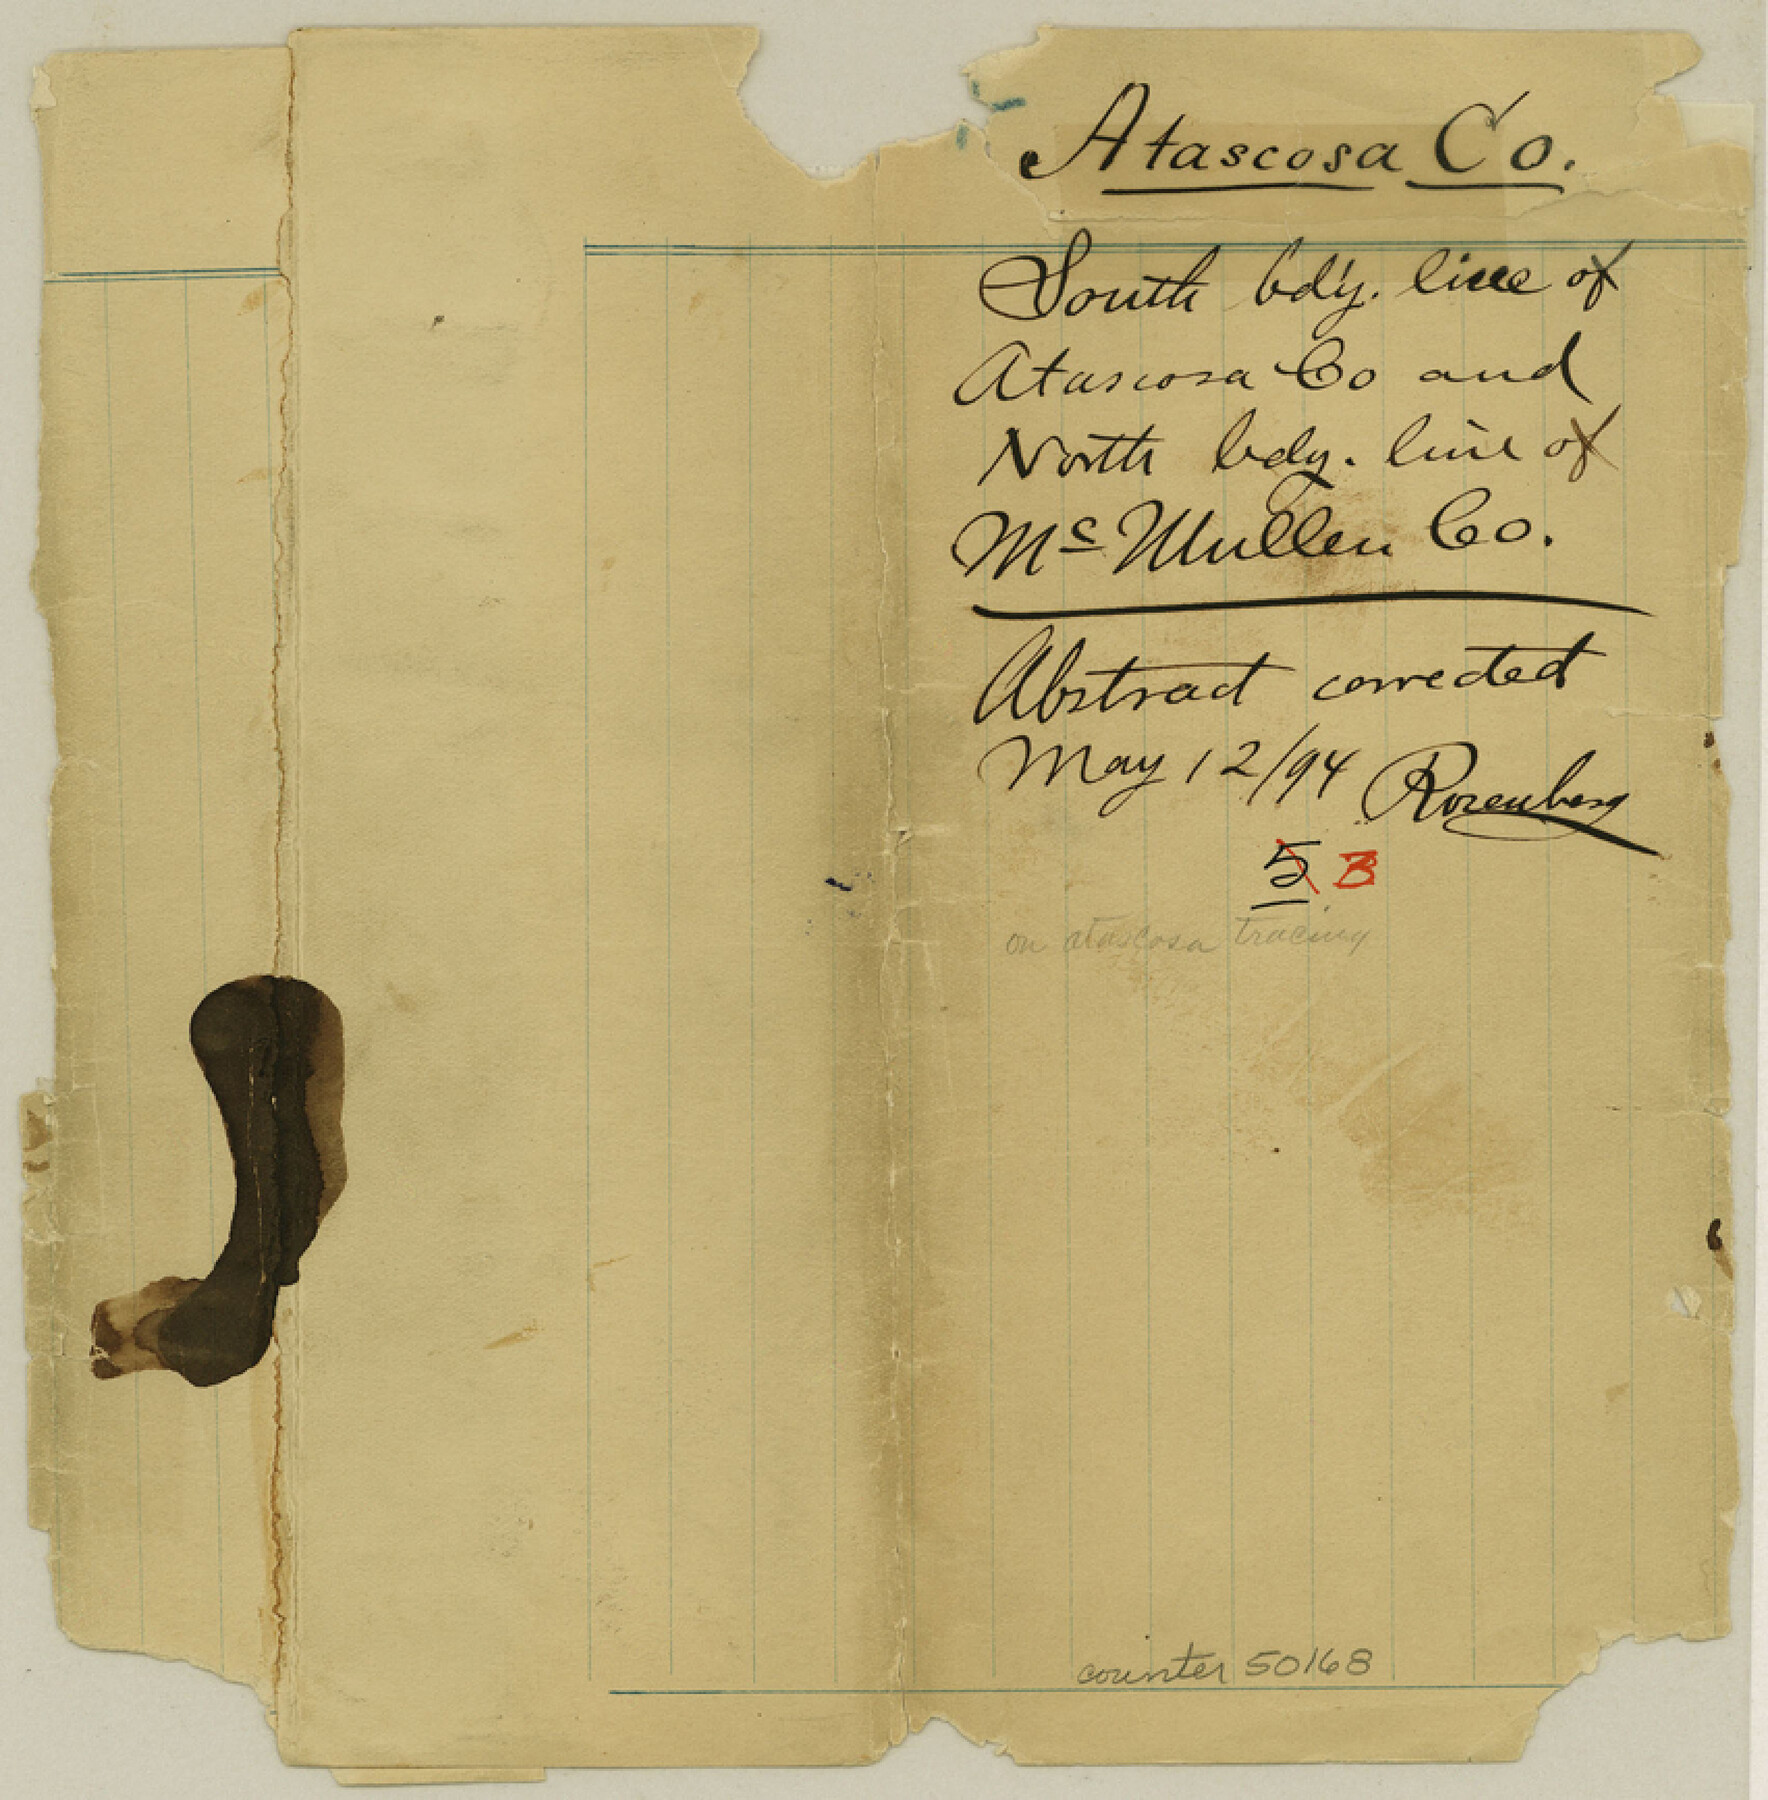 Atascosa Co.
South bd'y. line of
Atascosa Co and
North bdy. line of
Mc Mullen Co.
Abstract corrected
May 12/94 Rosenberg
5 3
on atascosa tracing
counter 50168